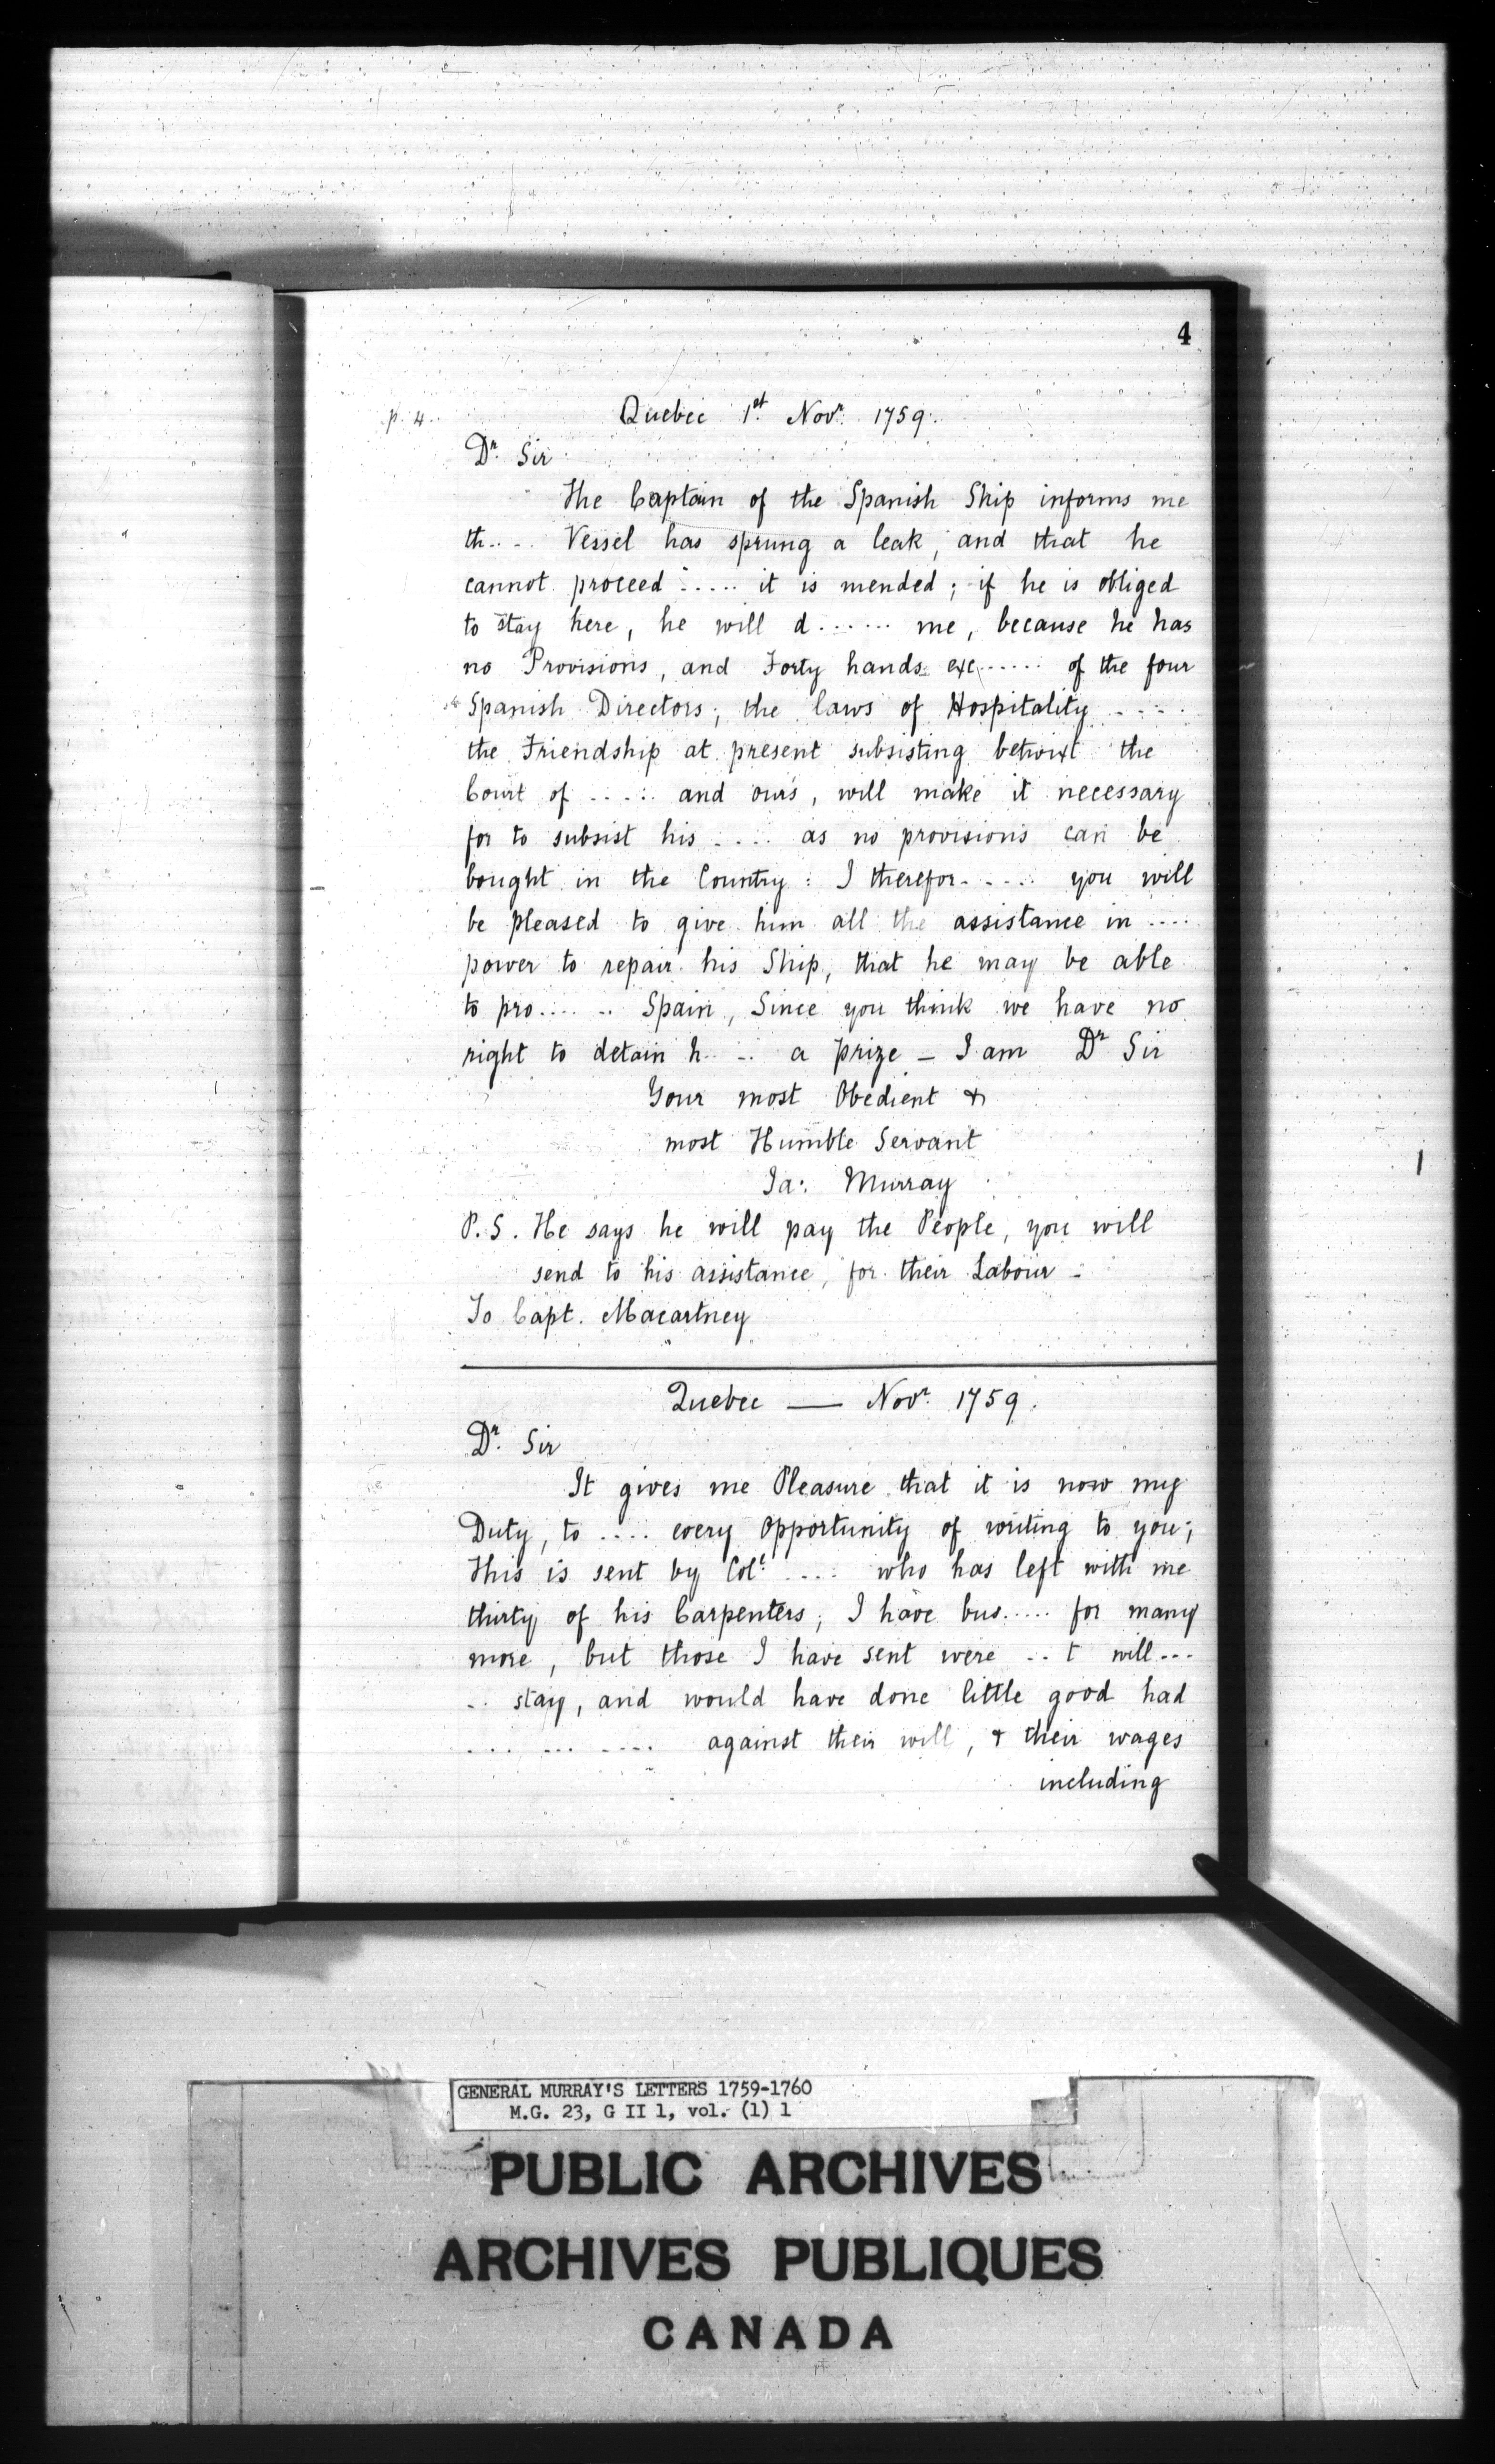 4
p. 4.
Quebec 1st Novr. 1759.
Dr. Sir
The Captain of the Spanish Ship informs me
th.... Vessel has sprung a leak, and that he
cannot proceed ..... it is mended; if he is obliged
to stay here, he will d...... me, because he has
no Provisions, and Forty hands exc...... of the four
Spanish Directors; the laws of Hospitality ....
the Friendship at present subsisting betwixt the
Court of ..... and ours, will make it necessary
for to subsist his .... as no provisions can be
bought in the Country: I therefor..... you will
be pleased to give him all the assistance in ....
power to repair his Ship, that he may be able
to pro.... .. Spain, Since you think we have no
right to detain h.. .. a prize – I am Dr Sir
Your most Obedient &
most Humble Servant
Ja: Murray
P.S. He says he will pay the People, you will
send to his assistance, for their Labour –
To Capt. Macartney
Quebec — Novr. 1759.
Dr. Sir
It gives me Pleasure that it is now my
Duty, to .... every Opportunity of writing to you;
This is sent by Colt. .... who has left with me
thirty of his Carpenters; I have bus..... for many
more, but those I have sent were .. t will...
.. stay, and would have done little good had
.... ... .... against their will, & their wages
including
GENERAL MURRAY'S LETTERS 1759-1760
M.G. 23, G II 1, vol. (1) 1
PUBLIC ARCHIVES
ARCHIVES PUBLIQUES
CANADA